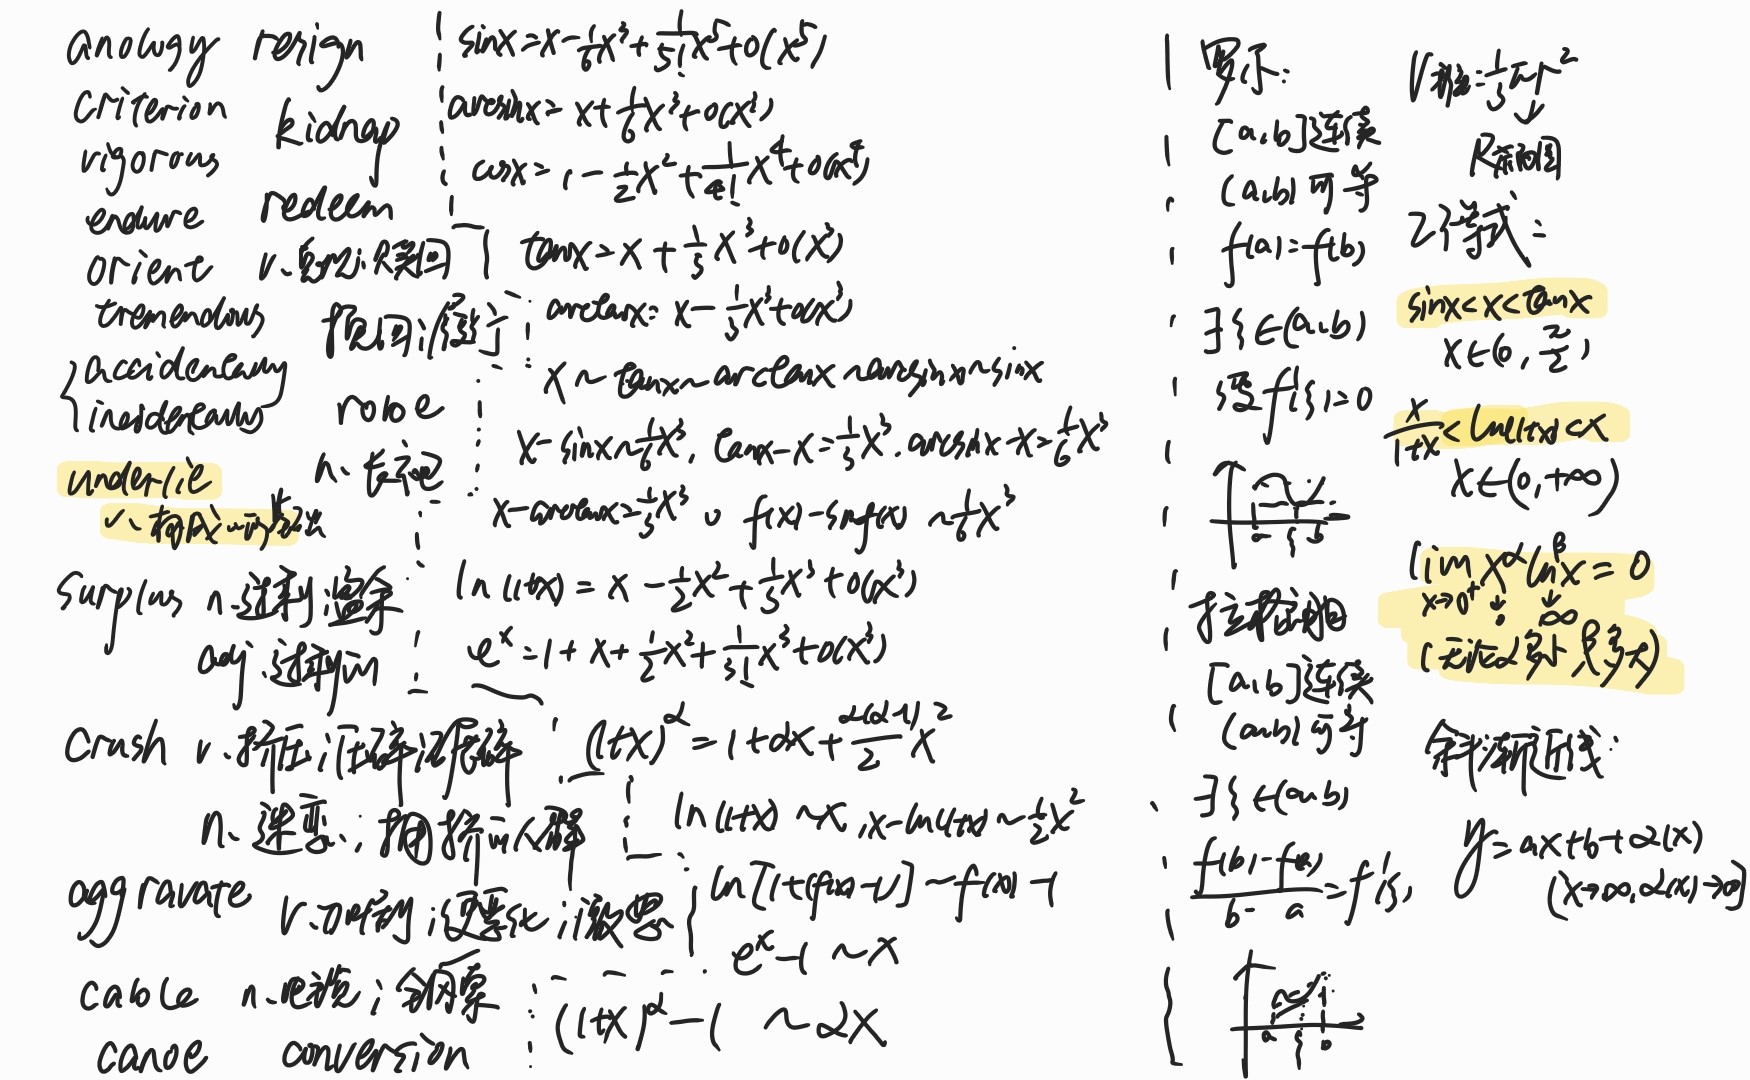 anology resign
criterion kidnap
rigorous
endure redeem
orient v. 赎回
tremendous
accidentally
incidentally robe
n. 长袍
underlie
v. 构成…的
surplus n. 过剩;盈余
adj. 过剩的
crush v. 挤压;压碎;
n. 迷恋; 拥挤的人群
aggravate v. 使恶化;激怒
cable n. 电缆;钢索
canoe conversion
sinx=x-1/6x³+1/5!x⁵+o(x⁵)
arcsinx=x+1/6x³+o(x³)
cosx=1-1/2x²+1/4!x⁴+o(x⁴)
tanx=x+1/3x³+o(x³)
arctanx=x-1/3x³+o(x³)
x~tanx~arctanx~arcsinx~sinx
x-sinx~1/6x³, tanx-x=1/3x³. arcsinx-x=1/6x³
x-arctanx=1/3x³ f(x)-sinf(x) ~1/6x³
ln(1+x)=x-1/2x²+1/3x³+o(x³)
eˣ=1+x+1/2x²+1/3!x³+o(x³)
(1+x)^α=1+αx+α(α-1)/2 x²
ln(1+x)~x, x-ln(1+x)~1/2x²
ln[1+(f(x)-1)]~f(x)-1
eˣ-1~x
(1+x)^α-1~αx
罗尔:
[a,b]连续
(a,b)可导
f(a)=f(b)
∃ξ∈(a,b)
f'(ξ)=0
a ξ b
拉格朗日
[a,b]连续
(a,b)可导
∃ξ∈(a,b)
f(b)-f(a)/b-a=f'(ξ)
a ξ b
V锥=1/3πr²
R
不等式:
sinx<x<tanx
x∈(0,π/2)
x/1+x<ln(1+x)<x
x∈(0,+∞)
lim x^α ln^β x=0
x→0⁺ ↓ ↓
0 ∞
(无论α多小,β多大)
斜渐近线:
y=ax+b+α(x)
(x→∞,α(x)→0)